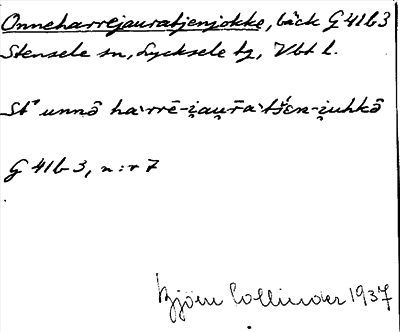 Onneharrejauratjenjokke, bäck G 41b3
Stensele sn, Lycksele tg, Vbt l.
St" unnō ha·rrē-i̯au̯r̄a·tśen-i̯uhkō
G 41b 3, n:r 7
Björn Collinder 1937